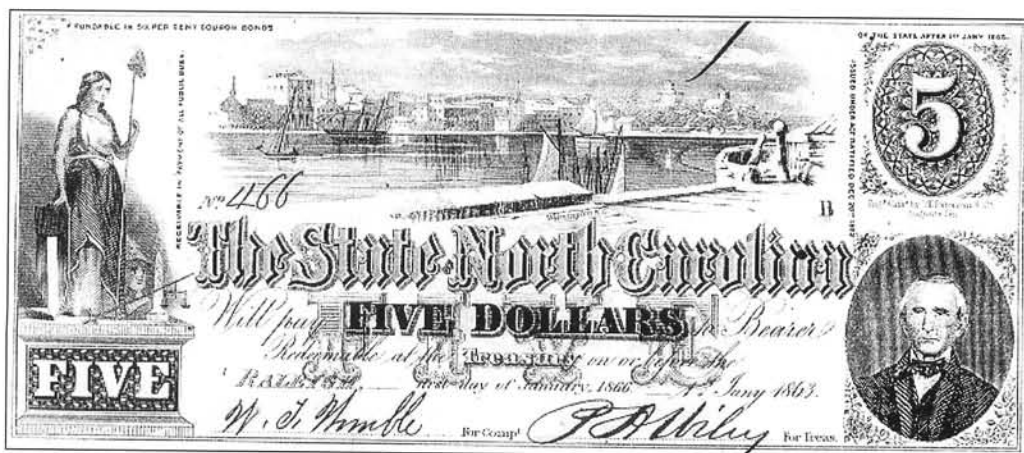 FUNDABLE IN SIX PER CENT COUPON BONDS
OF THE STATE AFTER 1ST JANY 1865.
RECEIVABLE IN PAYMENT OF ALL PUBLIC DUES.
ISSUED UNDER ACT RATIFIED DEC 20TH 1862
5
No. 466
B
The State of North Carolina
Will pay FIVE DOLLARS to Bearer
Redeemable at the Treasury on or before the
RALEIGH, first day of January, 1866 1st Jany 1863.
FIVE
W. T. Womble For Compt. P. H. Wiley For Treas.